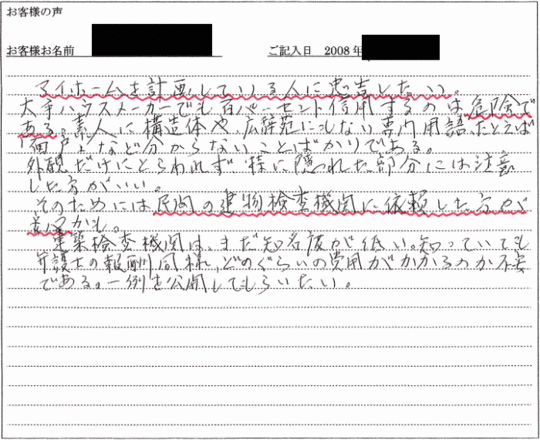 お客様の声
お客様お名前 ご記入日 2008年
マイホームを計画している人に忠告したい。
大手ハウスメーカーでも百パーセント信用するのは危険で
ある。素人に構造体や、広辞苑にもない専門用語、たとえば
"面戸"など分からないことばかりである。
外観だけにとらわれず 様に隠れた部分には注意
した方がいい。
そのためには民間の建物検査機関に依頼した方が
善いかも。
建築検査機関は、まだ知名度が低い。知っていても
弁護士の報酬同様、どのぐらいの費用がかかるのか不安
である。一例を公開してもらいたい。